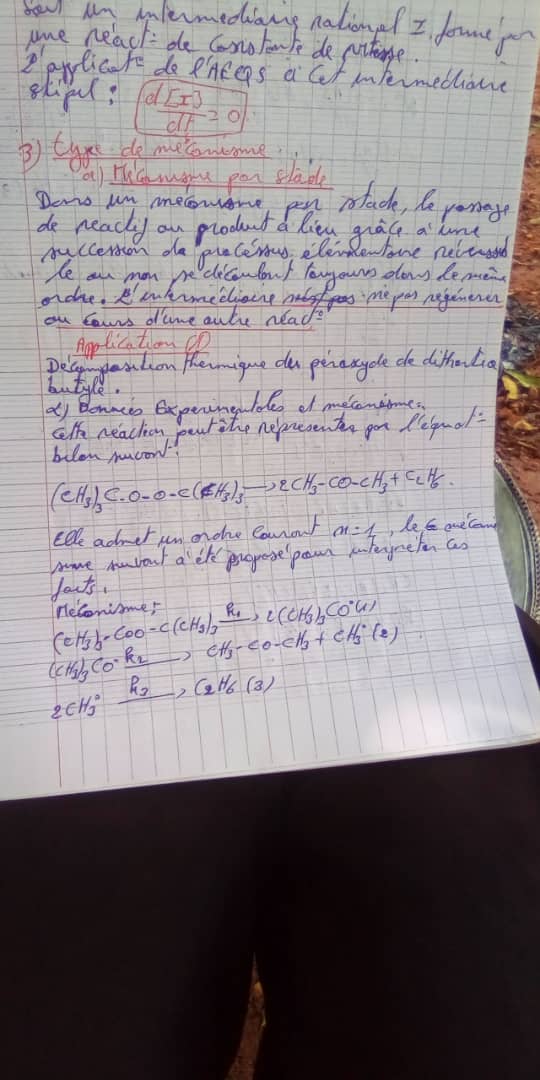 Soit un intermédiaire rationnel I, formé par
une réact= de constante de vitesse.
L'applicat= de l'AEQS à cet intermédiaire
stipul :
d[I]/dt = 0
3) type de mécanisme
a) Mécanisme par stade
Dans un mécanisme par stade, le passage
de reactif au produit à lieu grâce à une
succession de processus élémentaire réversib
le ou non se déroulant toujours dans le même
ordre. L'intermédiaire ne pas régénérer
au cours d'une autre réact=
Application (1)
Décomposition thermique du péroxyde de
butyle.
α) Données Experimentales et mécanisme:
Cette réaction peut être représenter par l'équat=
bilan suivant:
(CH3)3C-O-O-C(CH3)3 → 2CH3-CO-CH3 + C2H6.
Elle admet un ordre courant n=1, le mécani
sme suivant a été proposé pour interpréter ces
faits.
Mécanisme:
(CH3)3-COO-C(CH3)3 k1→ 2(CH3)3CO° (1)
(CH3)3CO· k2→ CH3-CO-CH3 + CH3° (2)
2CH3° k3→ C2H6 (3)